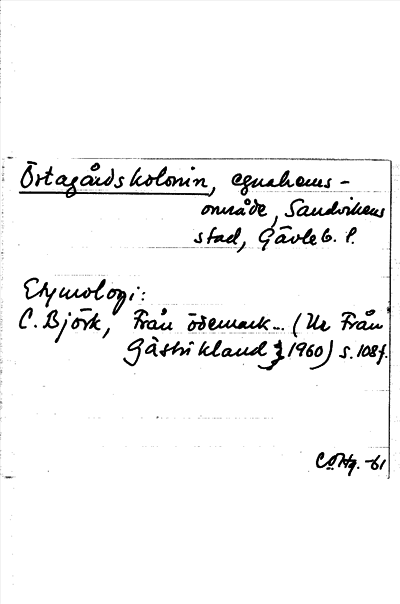 Örtagårdskolonin, egnahems-
område, Sandvikens
stad, Gävleb. l.
Etymologi:
C. Björk, Från ödemark... (Ur Från
Gästrikland 1960) s. 108f.
-61